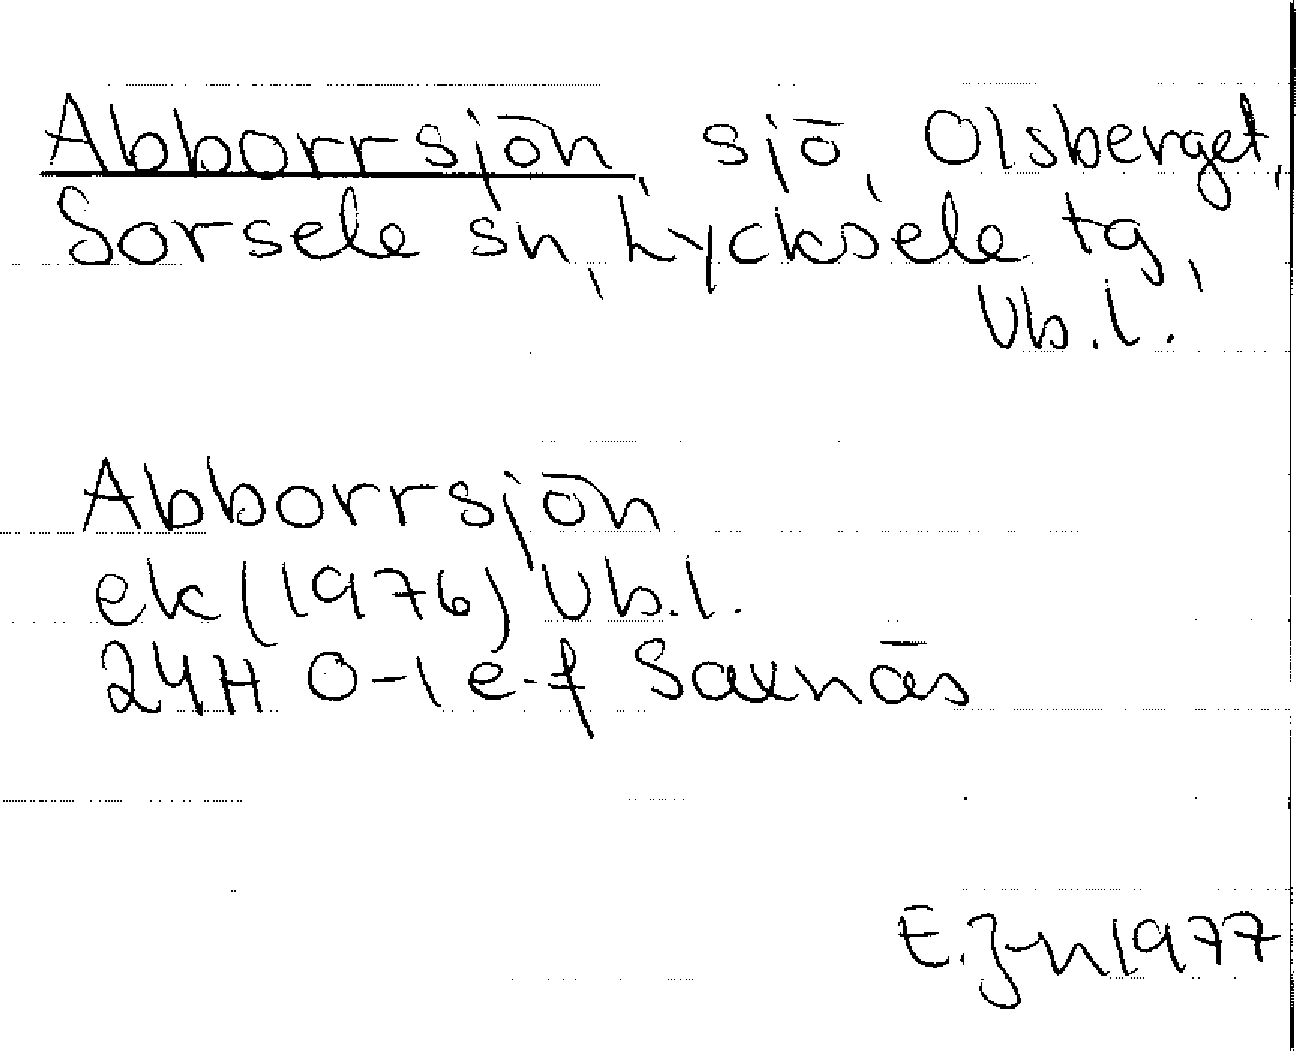 Abborrsjön, sjö, Olsberget,
Sorsele sn, Lycksele tg,
Vb.l.
Abborrsjön
ek (1976) Vb.l.
24H 0-1 e-f Saxnäs
E. J-n 1977